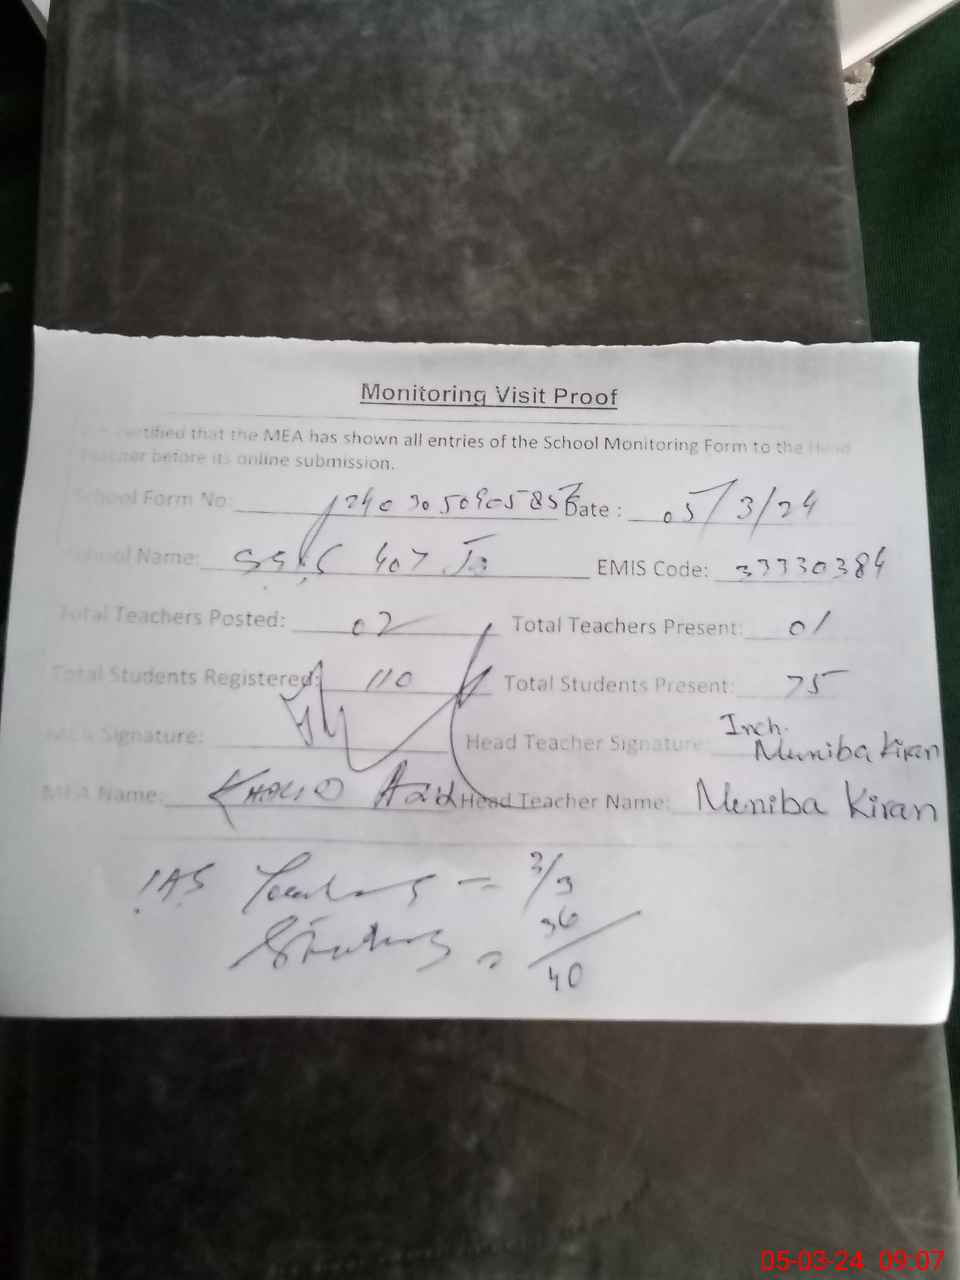 Monitoring Visit Proof
certified that the MEA has shown all entries of the School Monitoring Form to the Head
Teacher before its online submission.
School Form No: Date : 05/3/24
School Name: 407 EMIS Code: 33330384
Total Teachers Posted: 02 Total Teachers Present: 01
Total Students Registered: 110 Total Students Present: 75
MEA Signature: Head Teacher Signature: Inch. Muniba Kiran
MEA Name: KHALID Head Teacher Name: Muniba Kiran
IAS Teachers = 3/3
Students = 36/40
05-03-24 09:07